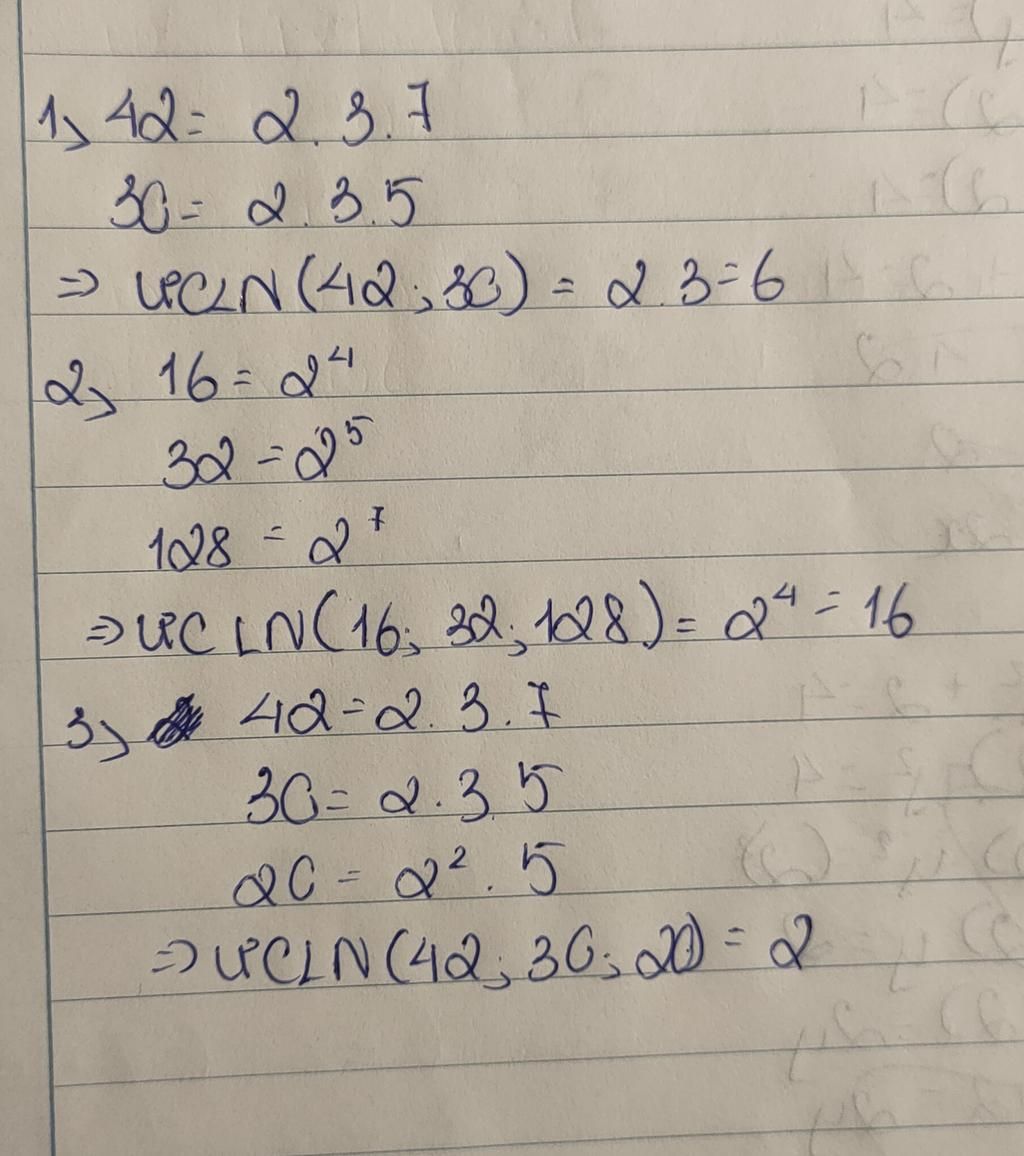 1, 42 = 2.3.7
30 = 2.3.5
=> ƯCLN(42;30) = 2.3=6
2, 16 = 2⁴
32 = 2⁵
128 = 2⁷
=> ƯCLN(16; 32; 128) = 2⁴ = 16
3, 42 = 2.3.7
30 = 2.3.5
20 = 2².5
=> ƯCLN(42; 30; 20) = 2